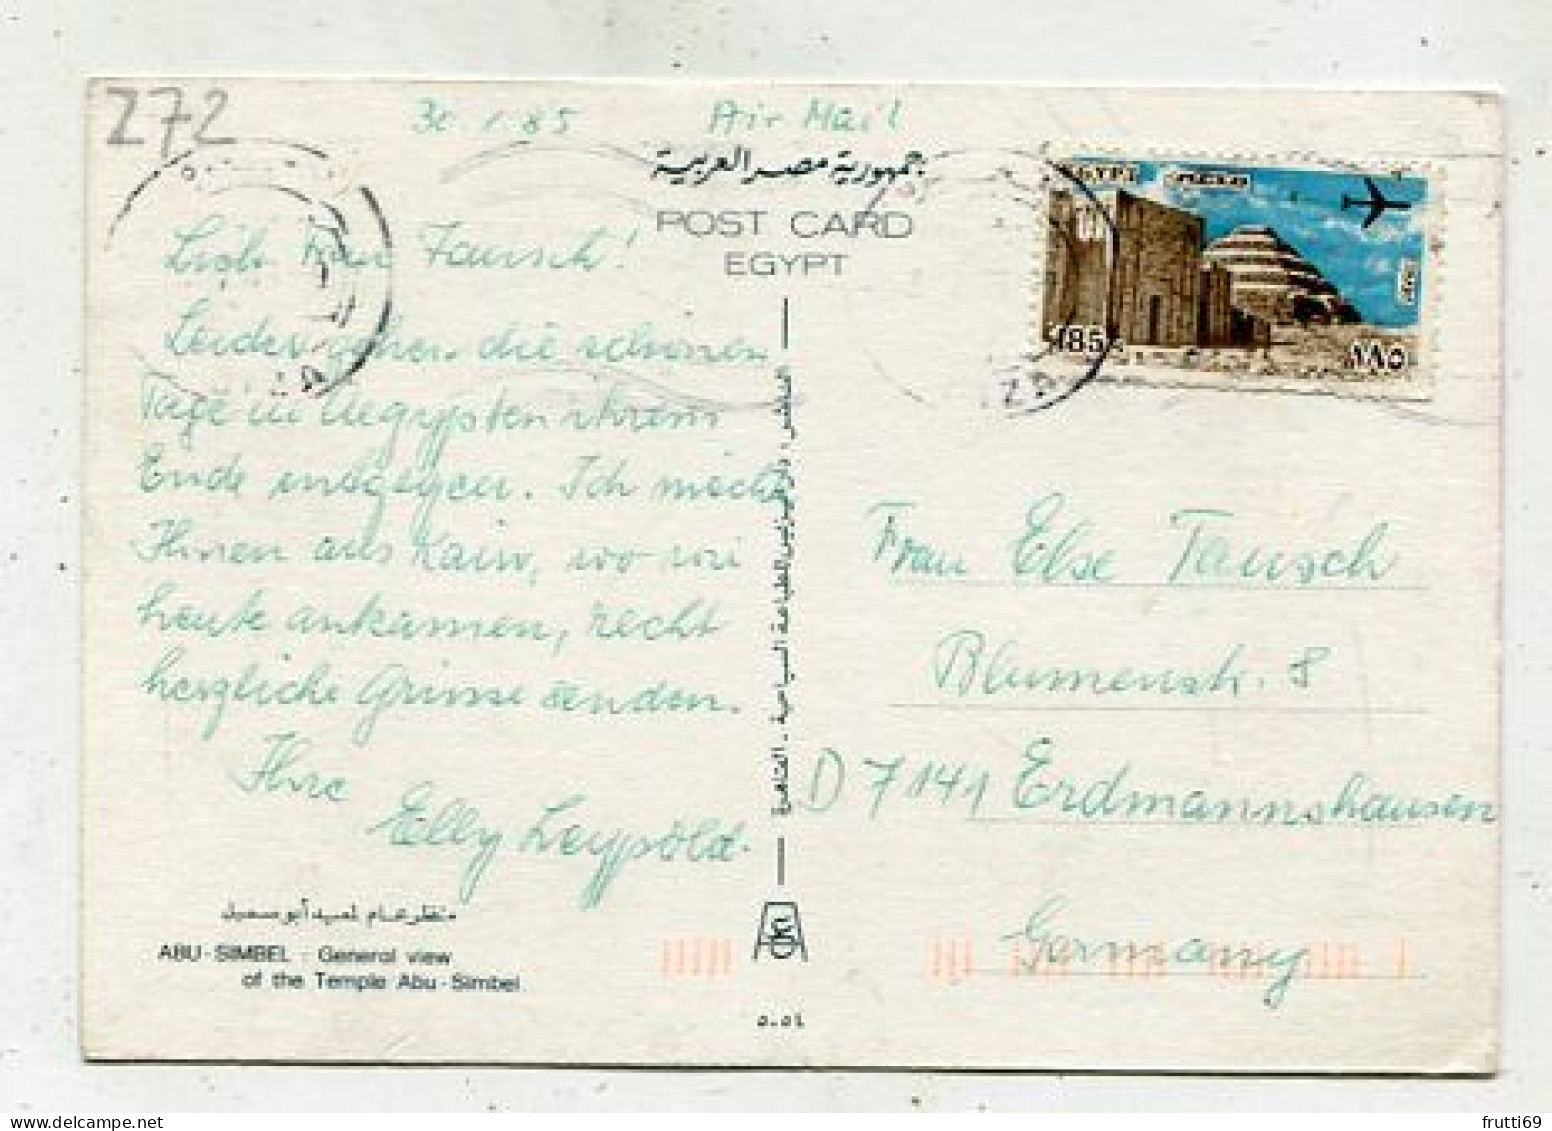 272
30.1.85 Air Mail
جمهورية مصر العربية
POST CARD
EGYPT
EGYPT
185
١٨٥
Liebe Frau Tausch!
Leider gehen die schönen
Tage in Aegypten ihrem
Ende entgegen. Ich möchte
Ihnen aus Kairo, wo wir
heute ankamen, recht
herzliche Grüsse senden.
Ihre
Elly Leypold
Frau Else Tausch
Blumenstr. 8
D 7141 Erdmannshausen
Germany
منظر عام لمعبد أبو سمبل
ABU-SIMBEL : General view
of the Temple Abu-Simbel
٥٠٥٤
frutti69